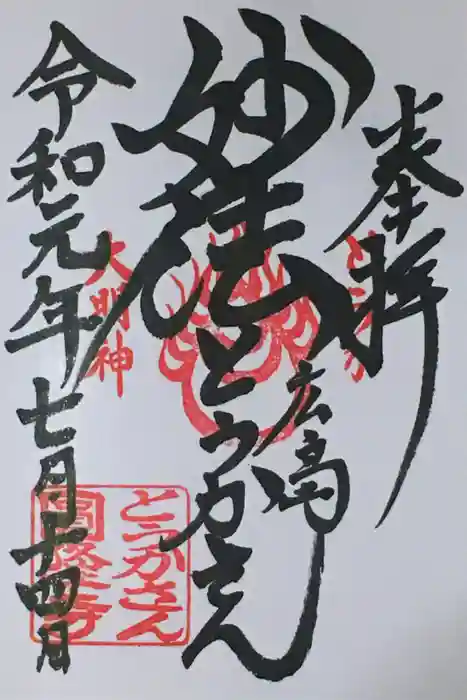 奉拝
広島
妙法
とうかさん
令和元年七月十四日
大明神
とうかさん
圓隆寺